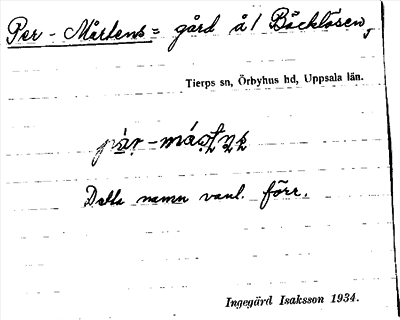 Per-Mårtens = gård å/ Båcklösen,
Tierps sn, Örbyhus hd, Uppsala län.
Detta namn vanl. förr.
Ingegärd Isaksson 1934.